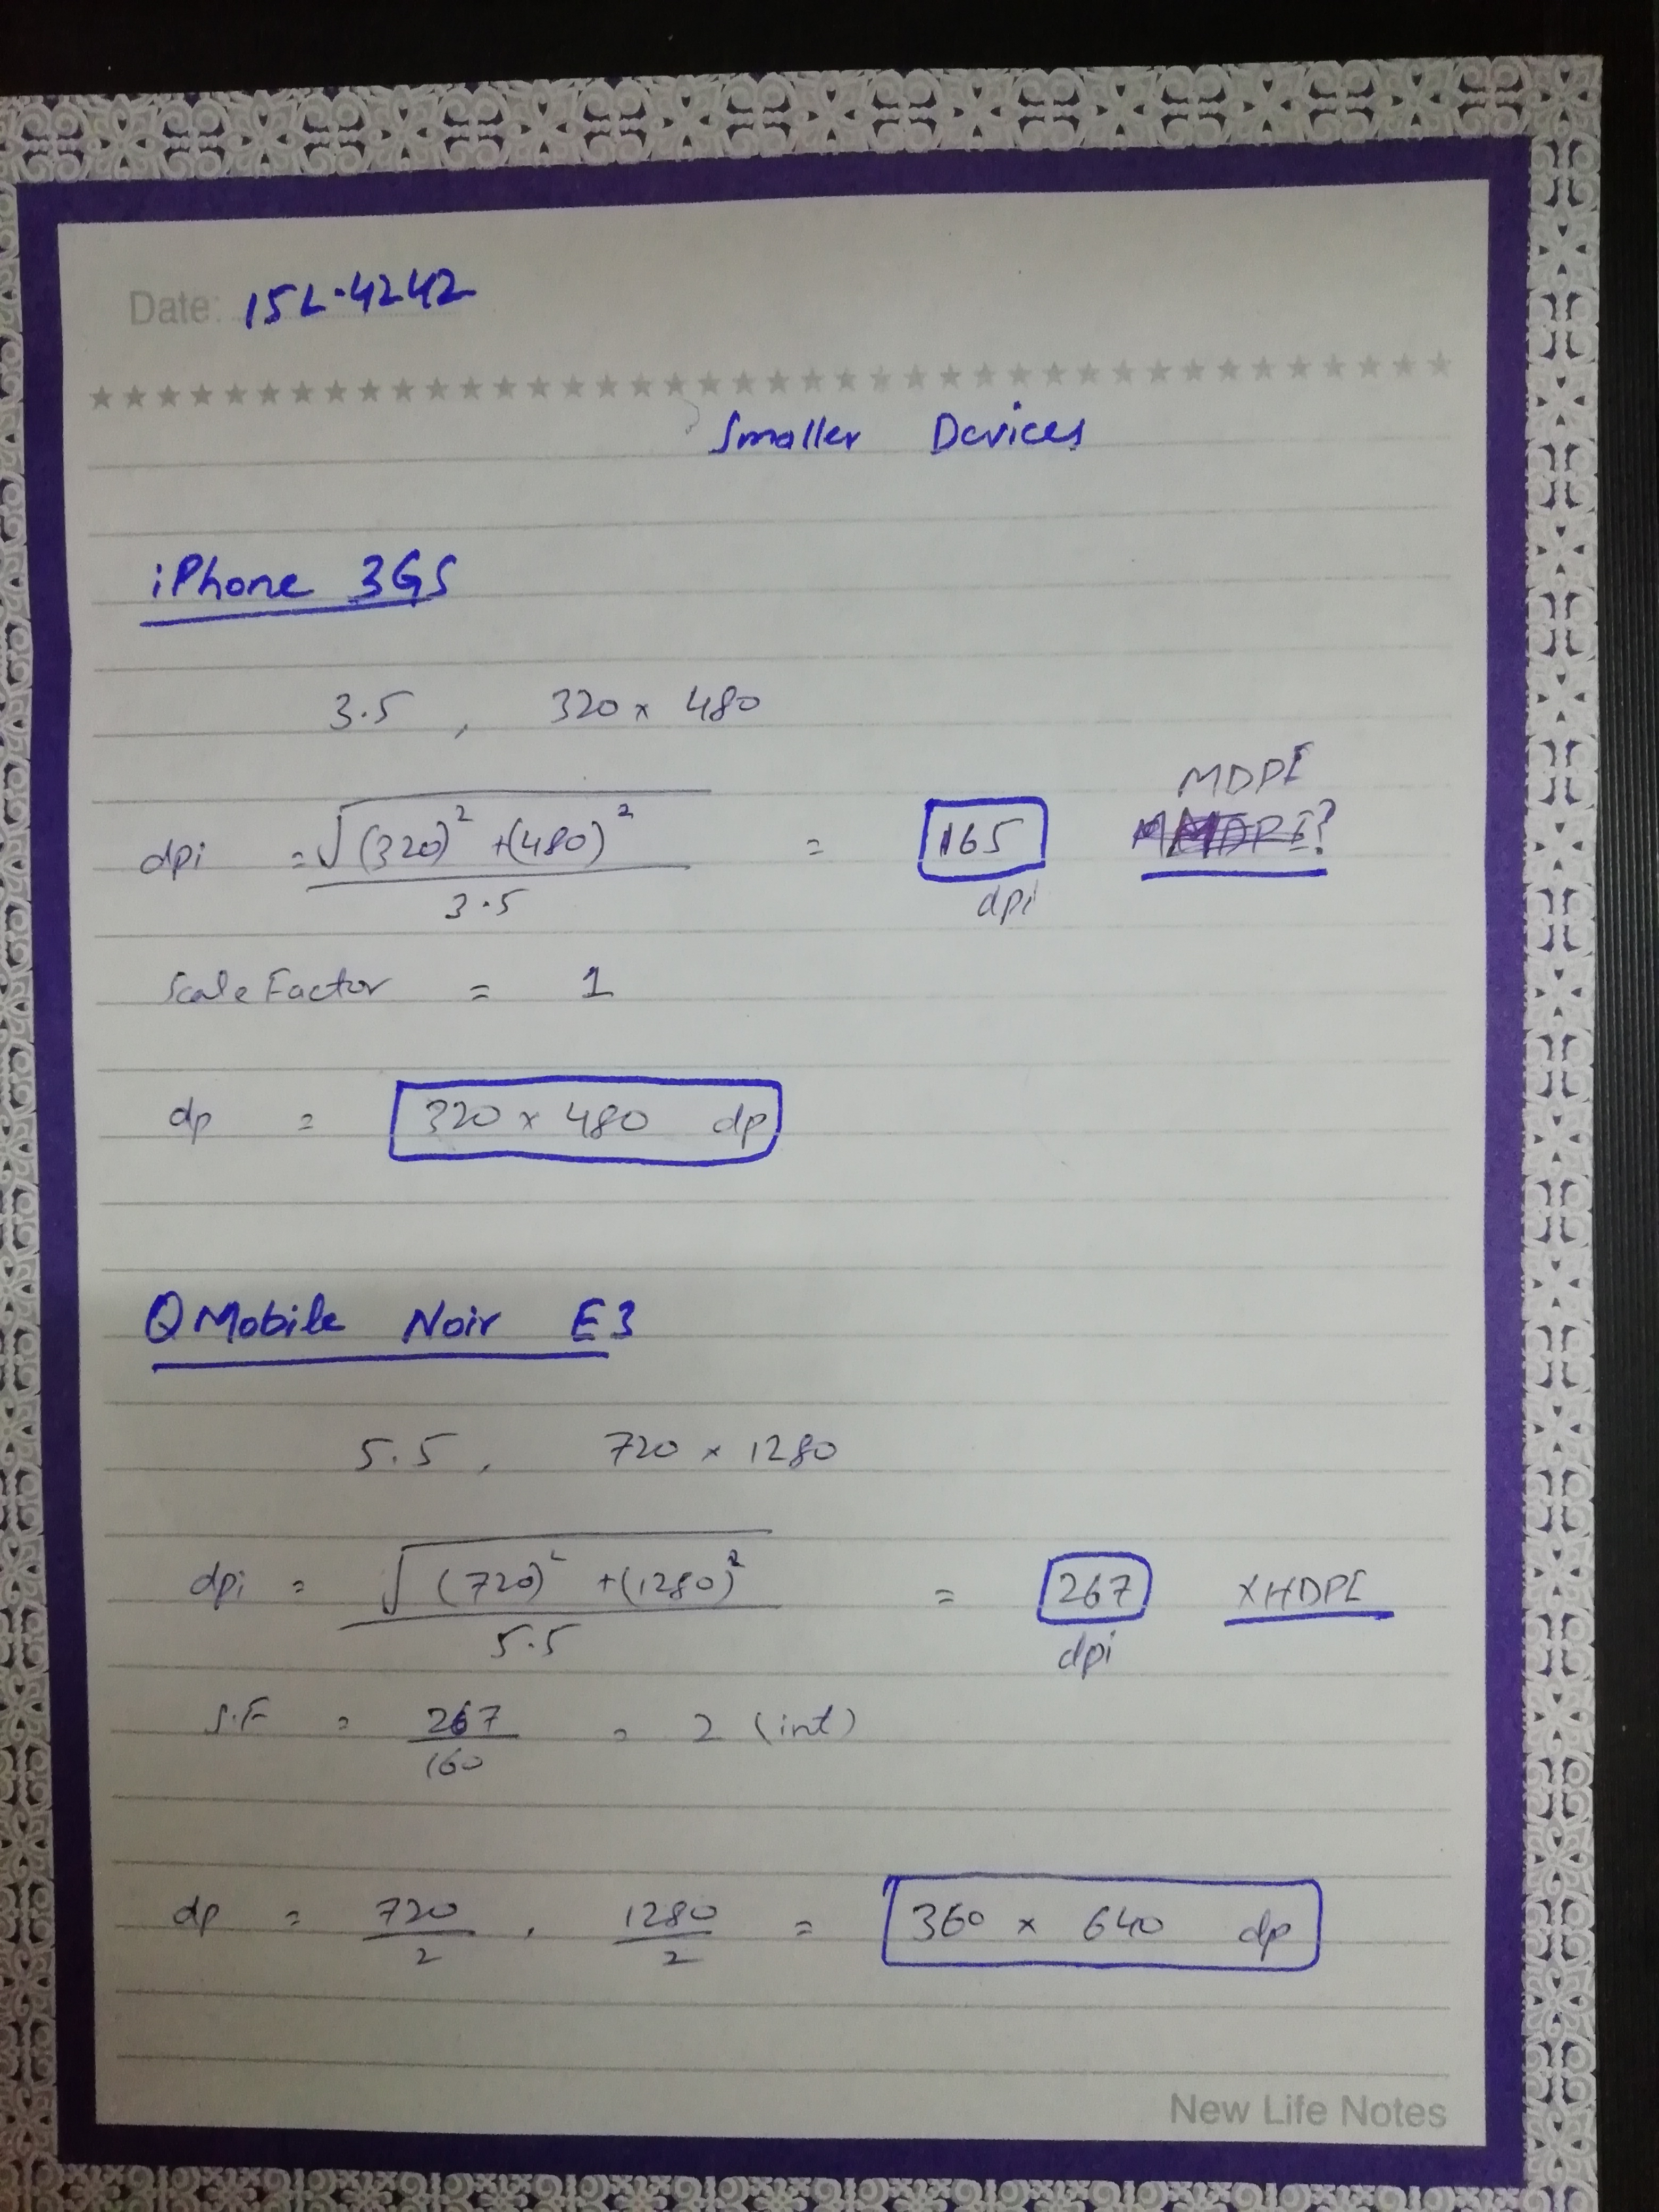 Date: 15L-4242
Smaller Devices
iPhone 3GS
3.5 , 320 x 480
MDPI
dpi = √(320)² + (480)² / 3.5 = 165 dpi
Scale Factor = 1
dp = 320 x 480 dp
QMobile Noir E3
5.5 , 720 x 1280
dpi = √(720)² + (1280)² / 5.5 = 267 dpi XHDPI
S.F = 267 / 160 = 2 (int)
dp = 720 / 2 , 1280 / 2 = 360 x 640 dp
New Life Notes